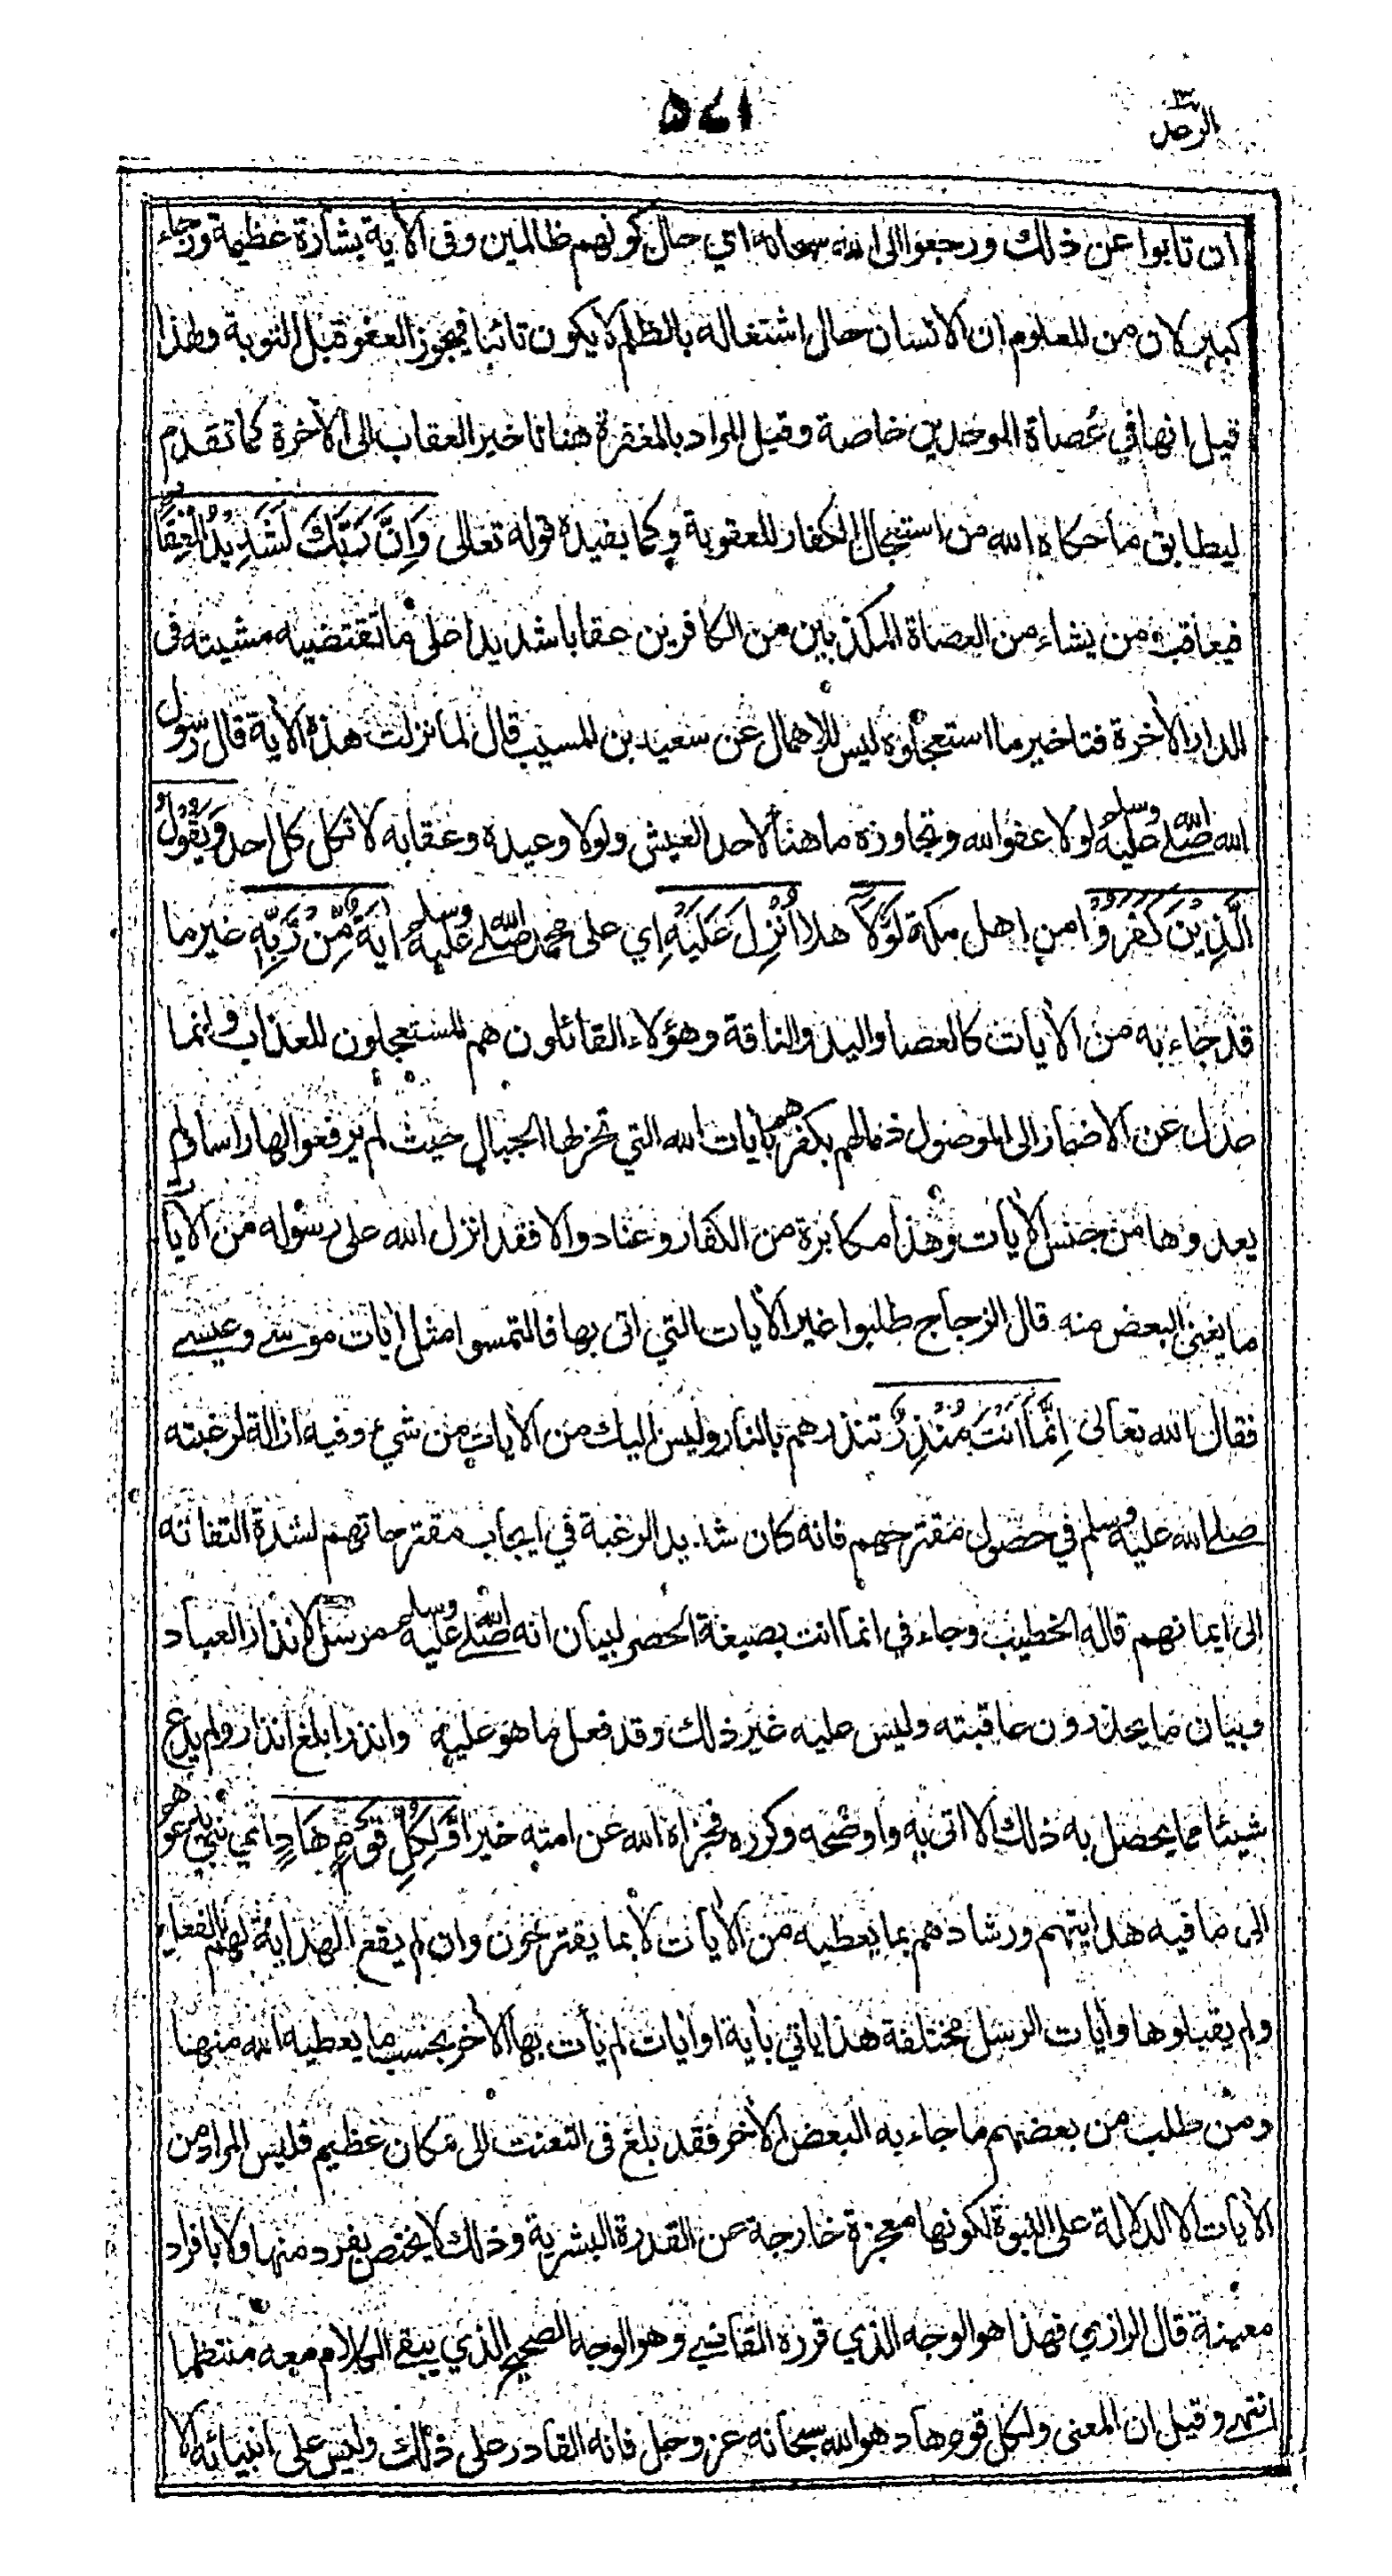 الرعد ١٣
٥٧١
ان تابوا عن ذلك ورجعوا الى الله سبحانه اي حال كونهم ظالمين وفى الأية بشارة عظيمة ورجاء
كبير لان من المعلوم ان الانسان حال اشتغاله بالظلم لا يكون تائبا فيجوز العفو قبل التوبة ولهذا
قيل انها في عُصاة الموحدين خاصة وقيل المراد بالمغفرة هنا تاخير العقاب الى الأخرة كما تقدم
ليطابق ما حكاه الله من استعجال الكفار للعقوبة وكما يفيده قوله تعالى وَاِنَّ رَبَّكَ لَشَدِيْدُ الْعِقَابِ
فيعاقب من يشاء من العصاة المكذبين من الكافرين عقابا شديدا على ما تقتضيه مشيته فى
الدار الأخرة فتاخير ما استعجلوه ليس للاهمال عن سعيد بن المسيب قال لما نزلت هذه الأية قال رسول
الله صلى الله عليه وسلم لولا عفو الله وتجاوزه ما هنأ لاحد العيش ولولا وعيده وعقابه لاتكل كل احد وَيَقُوْلُ
الَّذِيْنَ كَفَرُوْا من اهل مكة لَوْلَا هلا اُنْزِلَ عَلَيْهِ اي على محمد صلى الله عليه وسلم اٰيَةٌ مِّنْ رَّبِّهٖ غير ما
قد جاء به من الأيات كالعصا واليد والناقة وهؤلاء القائلون هم المستعجلون للعذاب وانما
عدل عن الاضمار الى الموصول ذما لهم بكفرهم بأيات الله التي تخر لها الجبال حيث لم يرفعوا لها راسا ولم
يعدوها من جنس الأيات وهذا مكابرة من الكفار وعناد والا فقد انزل الله على رسوله من الأيات
ما يغنى البعض منه قال الزجاج طلبوا غير الأيات التي اتى بها فالتمسوا مثل أيات موسى وعيسى
فقال الله تعالى اِنَّمَا اَنْتَ مُنْذِرٌ تنذرهم بالنار وليس اليك من الأيات من شيء وفيه ازالة لرغبته
صلى الله عليه وسلم في حصول مقترحهم فانه كان شديد الرغبة في ايجاب مقترحاتهم لشدة التفاته
الى ايمانهم قاله الخطيب وجاء في انما انت بصيغة الحصر لبيان انه صلى الله عليه وسلم مرسل لانذار العباد
وبيان ما يحذرون عاقبته وليس عليه غير ذلك وقد فعل ما هو عليه وانذر ابلغ انذار ولم يدع
شيئا مما يحصل به ذلك الا اتى به واوضحه وكرره فجزاه الله عن امته خيرا وَّلِكُلِّ قَوْمٍ هَادٍ اي نبي يدعوهم
الى ما فيه هدايتهم ورشادهم بما يعطيه من الأيات لا بما يقترحون وان لم يقع الهداية لهم بالفعل
ولم يقبلوها وأيات الرسل مختلفة هذا ياتي بأية او أيات لم يأت بها الأخر بحسب ما يعطيه الله منها
ومن طلب من بعضهم ما جاء به البعض الأخر فقد بلغ فى التعنت الى مكان عظيم فليس المراد من
الأيات الا الدلالة على النبوة لكونها معجزة خارجة عن القدرة البشرية وذلك لا يختص بفرد منها ولا بافراد
معينة قال الرازي فهذا هو الوجه الذي قرره القاضي وهو الوجه الصحيح الذي يبقى الكلام معه منتظما
انتهى وقيل ان المعنى ولكل قوم هاد هو الله سبحانه عز وجل فانه القادر على ذلك وليس على انبيائه الا